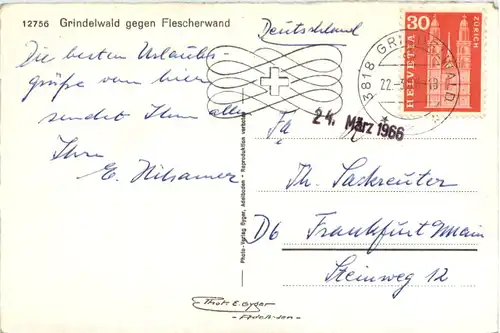 12756 Grindelwald gegen Fiescherwand
Die besten Urlaubs-
grüße von hier
sendet Ihnen allen
Ihr
E. Hilsamer
Photo-Verlag Gyger, Adelboden - Reproduktion verboten
Deutschland
3818 GRINDELWALD
22-3
30
HELVETIA
ZÜRICH
24. März 1966
Fa
Th. Sackreuter
D6 Frankfurt/Main
Steinweg 12
Phot. E. Gyger
-Adelboden-